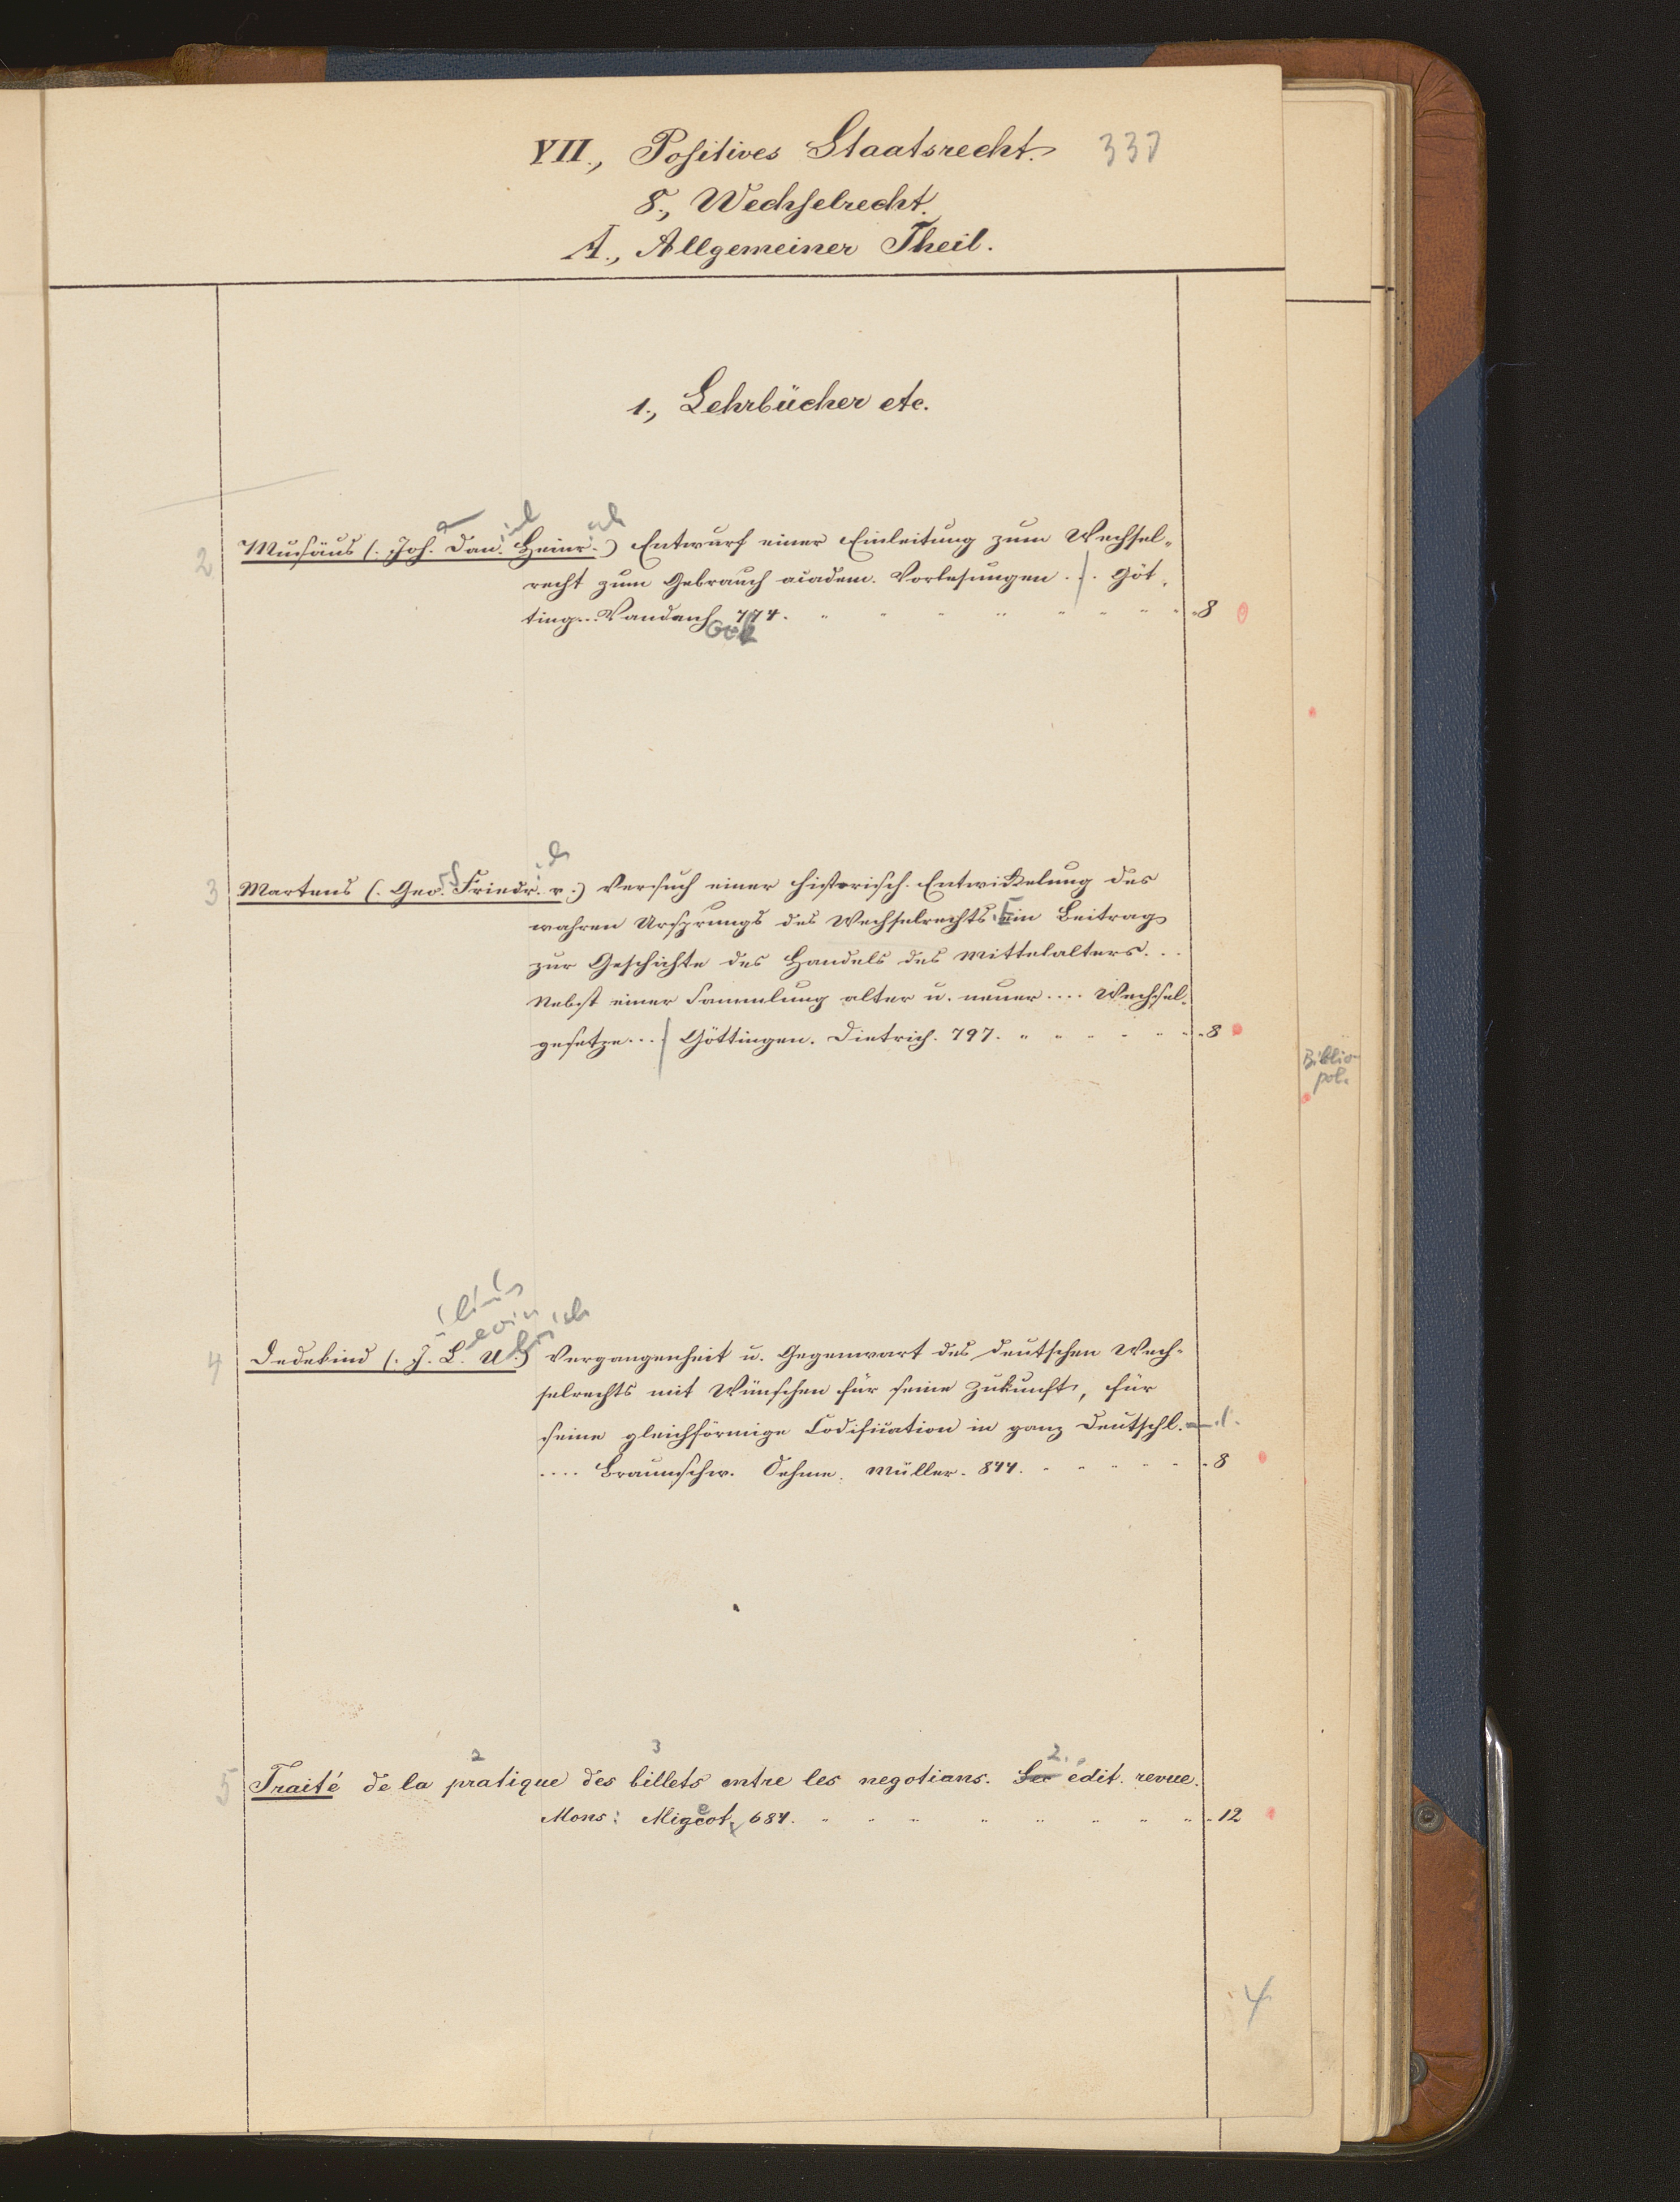 VII., Positives Staatsrecht. 337
8., Wechselrecht.
A., Allgemeiner Theil.
1., Lehrbücher etc.
2 Musäus (. Joh. Dan. Heinr.) Entwurf einer Einleitung zum Wechsel-
recht zum Gebrauch academ. Vorlesungen . . Göt-
ting... Vandenh 774. 8
3 Martens (. Geo. Friedr. v.) Versuch einer historisch. Entwickelung des
wahren Ursprungs des Wechselrechts. Ein Beitrag
zur Geschichte des Handels des Mittelalters. ..
Nebst einer Sammlung alter u. neuer .... Wechsel-
gesetze ... Göttingen. Dietrich. 797. 8
Biblio-
pol.
4 Dedekind (. J. L. U.) Vergangenheit u. Gegenwart des deutschen Wech-
selrechts mit Wünschen für seine Zukunft, für
seine gleichförmige Codification in ganz Deutschl.
.... Braunschw. Oehme. Müller. 844. 8
2 3 2.
5 Traité de la pratique des billets entre les negotians. Sec édit. revue.
Mons: Migeot, 684. 12
4